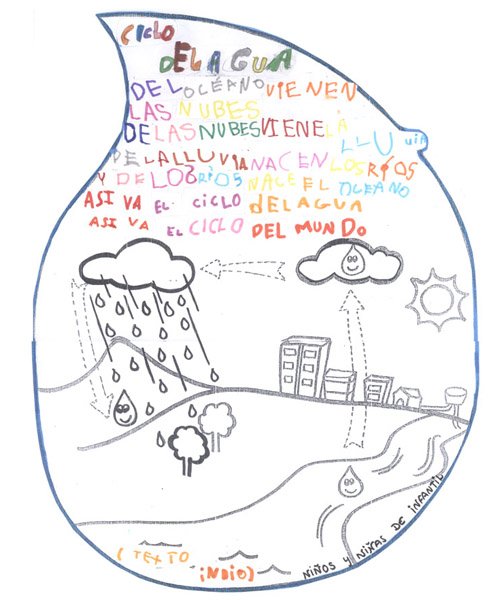 CICLO
DEL AGUA
DEL OCÉANO VIENEN
LAS NUBES
DE LAS NUBES VIENE LA
LLUVIA
DE LA LLUVIA NACEN LOS RÍOS
Y DE LOS RÍOS NACE EL OCEANO
ASI VA EL CICLO DEL AGUA
ASI VA EL CICLO DEL MUNDO
(TEXTO
INDIO)
NIÑOS Y NIÑAS DE INFANTIL